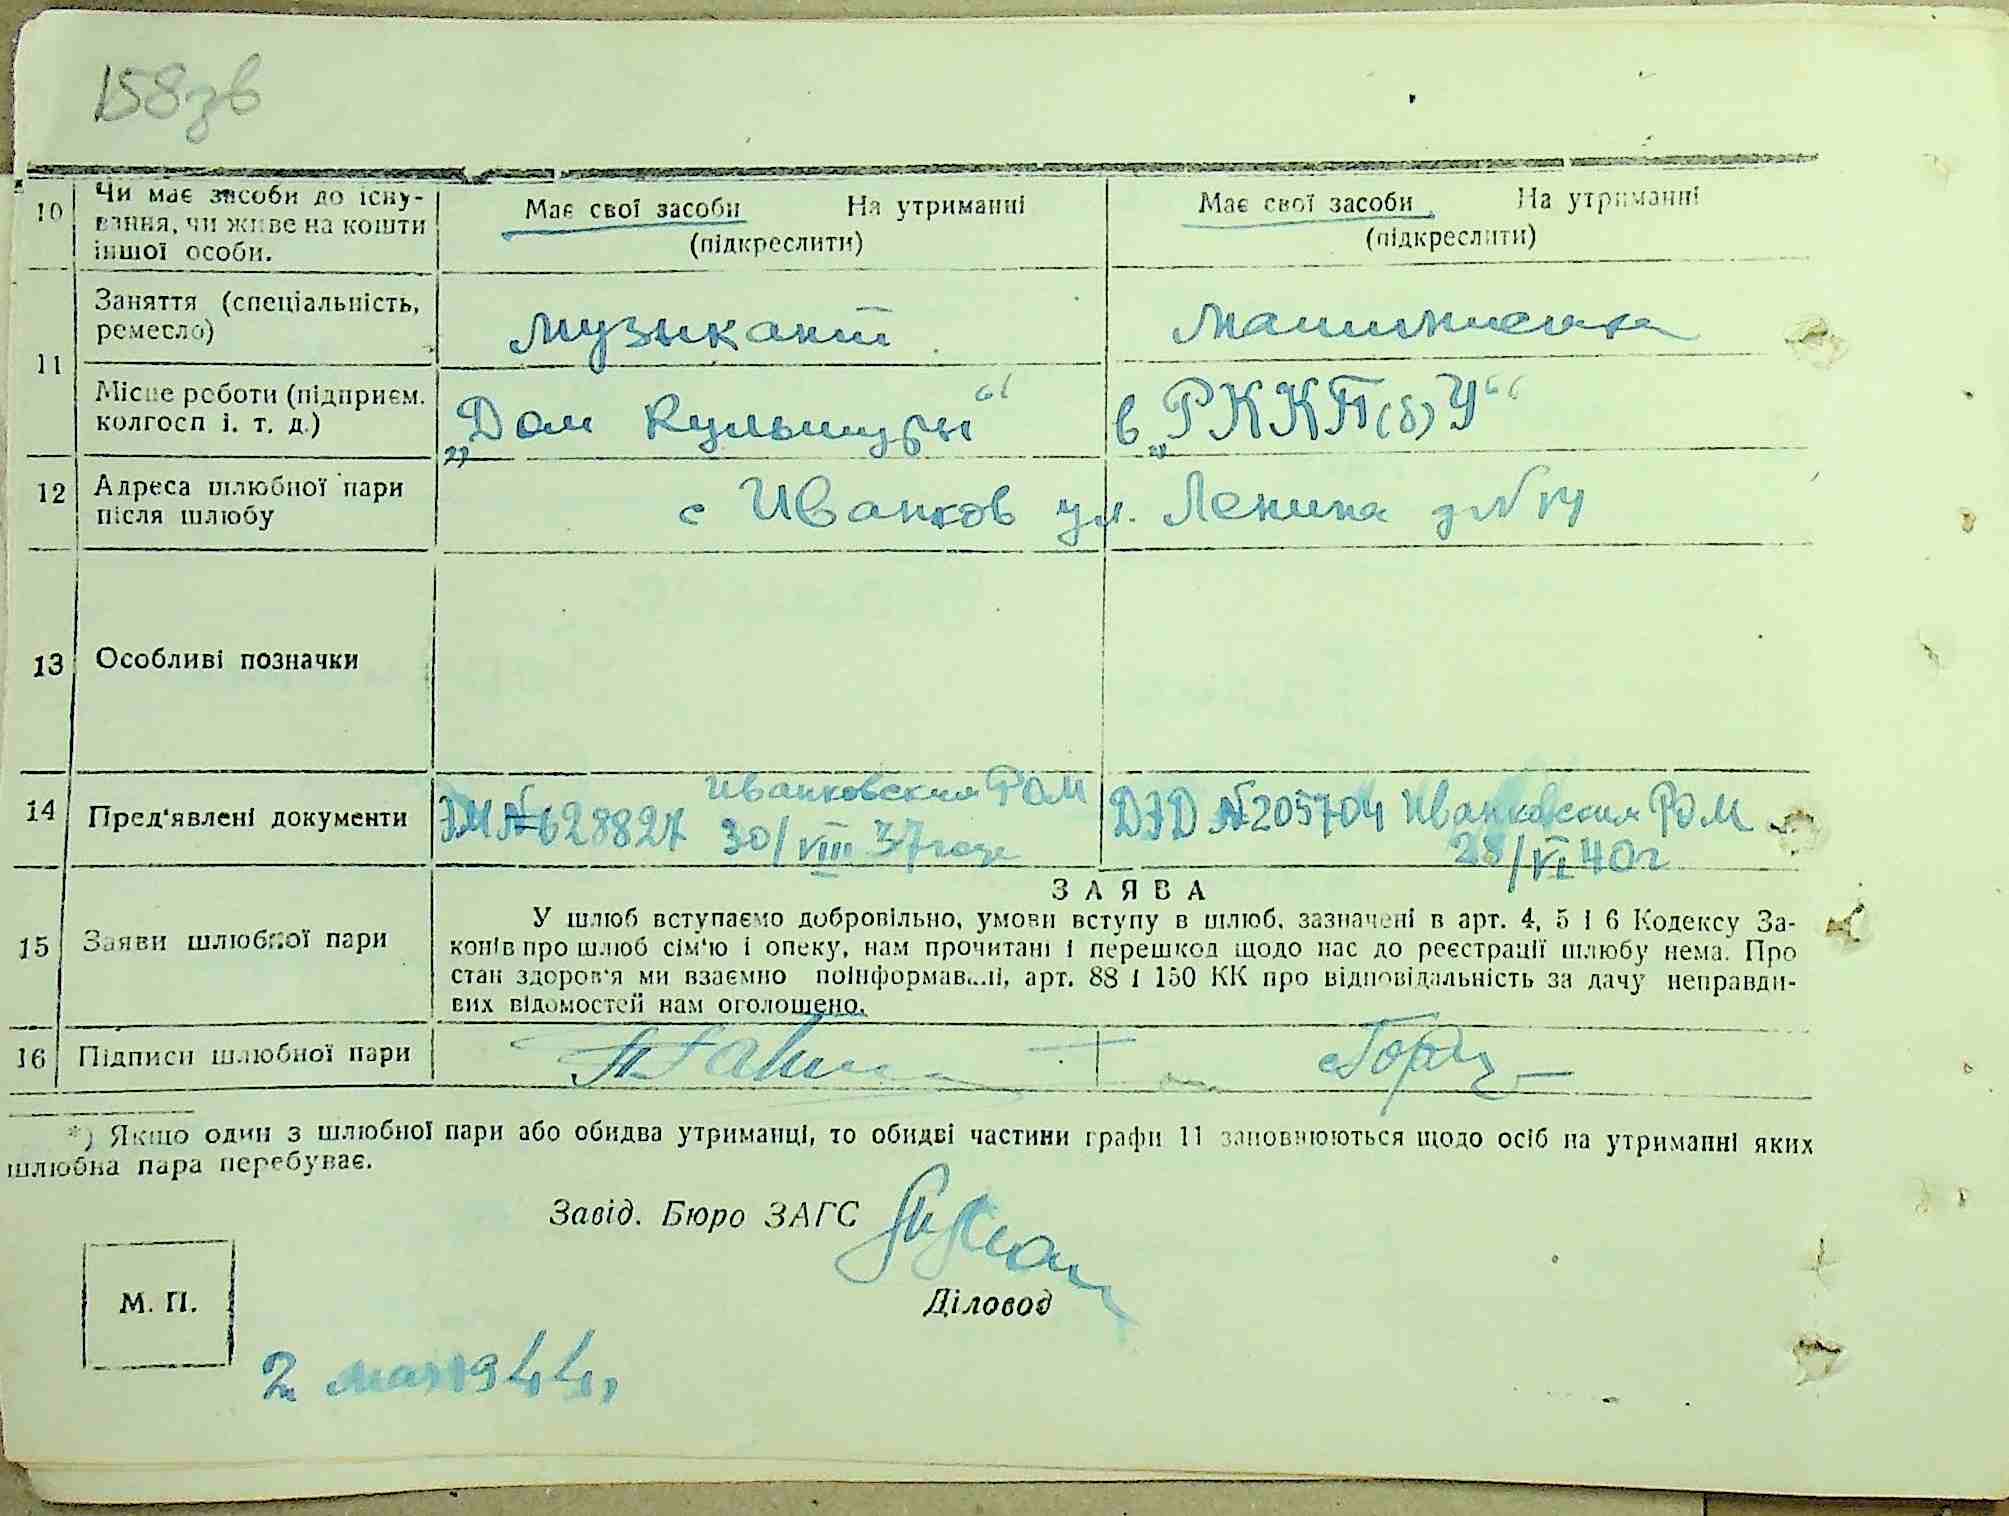 158зв
10 Чи має засоби до існу-
вання, чи живе на кошти
іншої особи.
Має свої засоби На утриманні
(підкреслити)
Має свої засоби На утриманні
(підкреслити)
11 Заняття (спеціальність,
ремесло)
музыкант
машинистка
Місце роботи (підприєм.
колгосп і. т. д.)
„Дом Культуры“
в „РККП(б)У“
12 Адреса шлюбної пари
після шлюбу
с Иванков ул. Ленина д №
13 Особливі позначки
14 Пред'явлені документи
№ 628827 Иванковским РОМ
30/VIII 37 года
№ 205704 Иванковским РОМ
28/VI 40 г
15 Заяви шлюбної пари
ЗАЯВА
У шлюб вступаємо добровільно, умови вступу в шлюб, зазначені в арт. 4, 5 і 6 Кодексу За-
конів про шлюб сім'ю і опеку, нам прочитані і перешкод щодо нас до реєстрації шлюбу нема. Про
стан здоров'я ми взаємно поінформавані, арт. 88 і 150 КК про відповідальність за дачу неправди-
вих відомостей нам оголошено.
16 Підписи шлюбної пари
*) Якщо один з шлюбної пари або обидва утриманці, то обидві частини графи 11 заповнюються щодо осіб на утриманні яких
шлюбна пара перебуває.
Завід. Бюро ЗАГС
Діловод
М. П.
2 мая 1944,